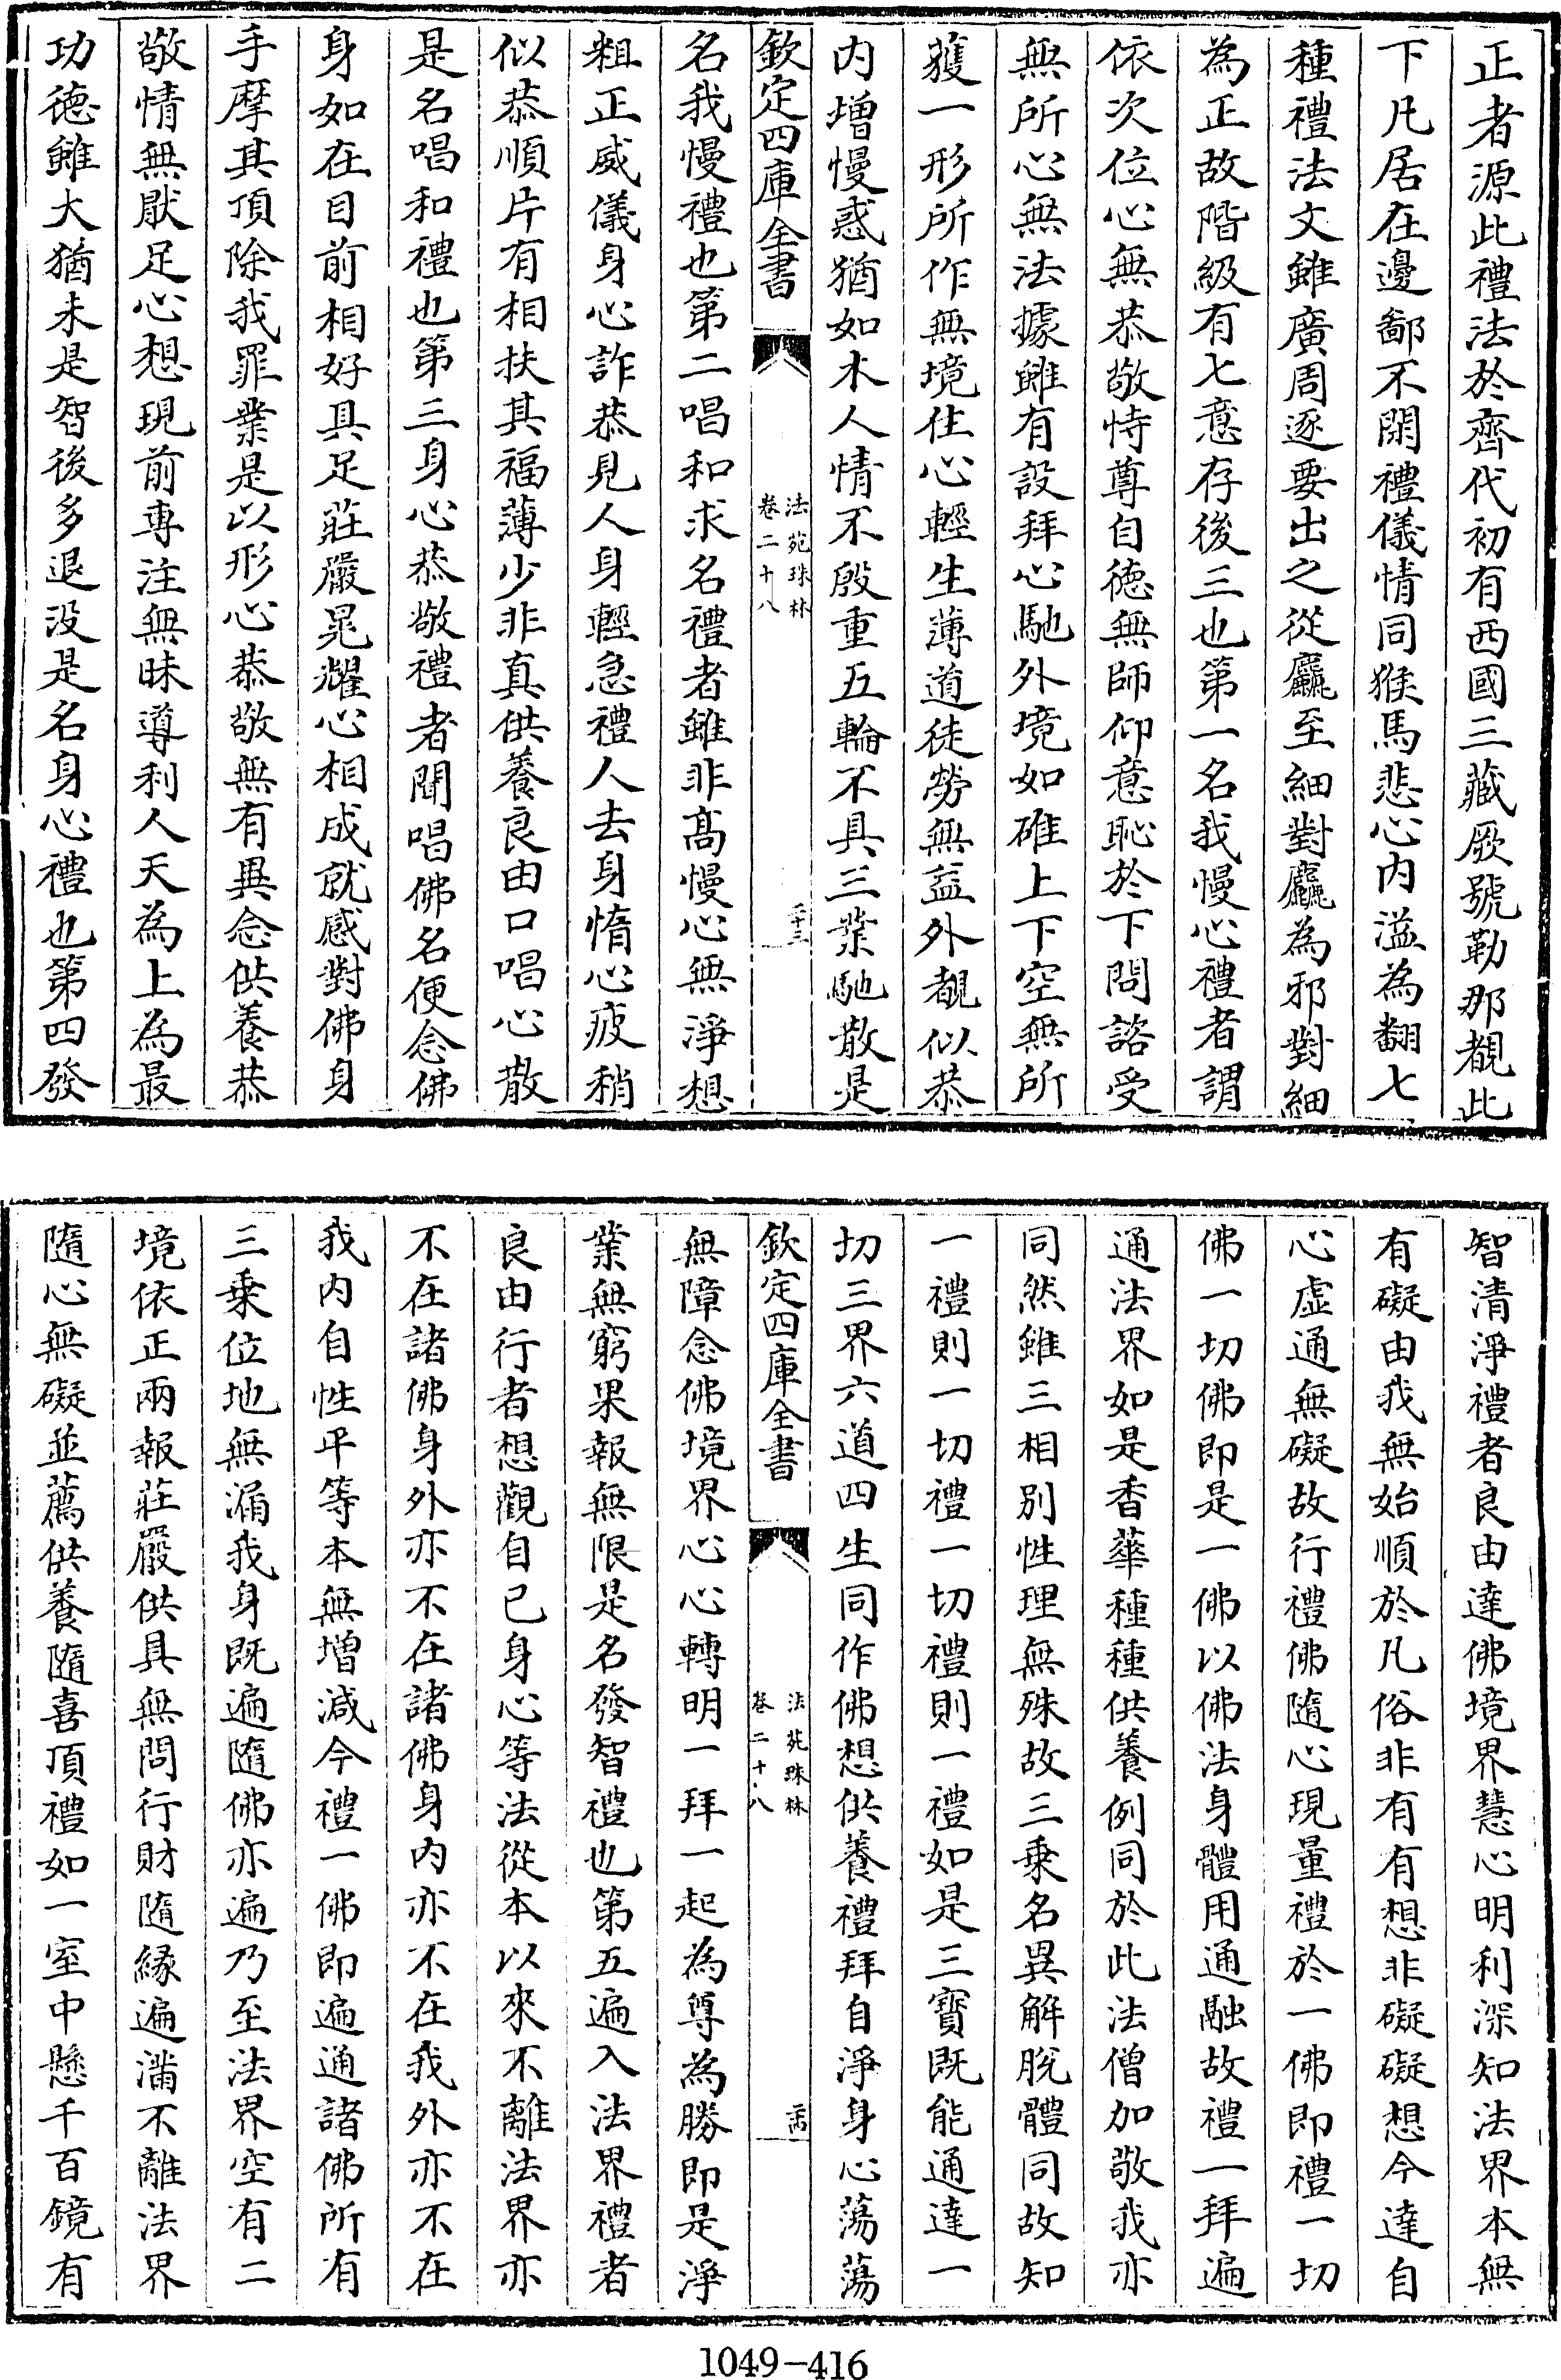 正者源此禮法於齊代初有西國三藏厥號勒那覩此
下凡居在邊鄙不閑禮儀情同猴馬悲心内溢為翻七
種禮法文雖廣周逐要出之從麤至細對麤為邪對細
為正故階級有七意存後三也第一名我慢心禮者謂
依次位心無恭敬恃尊自徳無師仰意恥於下問諮受
無所心無法據雖有設拜心馳外境如碓上下空無所
獲一形所作無境住心輕生薄道徒勞無益外覩似恭
内增慢惑猶如木人情不殷重五輪不具三業馳散是
欽定四庫全書
法苑珠林
卷二十八
二十三
名我慢禮也第二唱和求名禮者雖非髙慢心無淨想
粗正威儀身心詐恭見人身輕急禮人去身惰心疲稍
似恭順片有相扶其福薄少非真供養良由口唱心散
是名唱和禮也第三身心恭敬禮者聞唱佛名便念佛
身如在目前相好具足莊嚴晃耀心相成就感對佛身
手摩其頂除我罪業是以形心恭敬無有異念供養恭
敬情無猒足心想現前専注無昧導利人天為上為最
功徳雖大猶未是智後多退没是名身心禮也第四發
智清淨禮者良由達佛境界慧心明利深知法界本無
有礙由我無始順於凡俗非有有想非礙礙想今達自
心虚通無礙故行禮佛隨心現量禮於一佛即禮一切
佛一切佛即是一佛以佛法身體用通融故禮一拜遍
通法界如是香華種種供養例同於此法僧加敬我亦
同然雖三相别性理無殊故三乗名異解脱體同故知
一禮則一切禮一切禮則一禮如是三寳既能通達一
切三界六道四生同作佛想供養禮拜自淨身心蕩蕩
欽定四庫全書
法苑珠林
卷二十八
二十四
無障念佛境界心心轉明一拜一起為尊為勝即是淨
業無窮果報無限是名發智禮也第五遍入法界禮者
良由行者想觀自已身心等法從本以來不離法界亦
不在諸佛身外亦不在諸佛身内亦不在我外亦不在
我内自性平等本無增減今禮一佛即遍通諸佛所有
三乗位地無漏我身既遍隨佛亦遍乃至法界空有二
境依正兩報莊嚴供具無問行財隨縁遍滿不離法界
隨心無礙並薦供養隨喜頂禮如一室中懸千百鏡有
1049-416